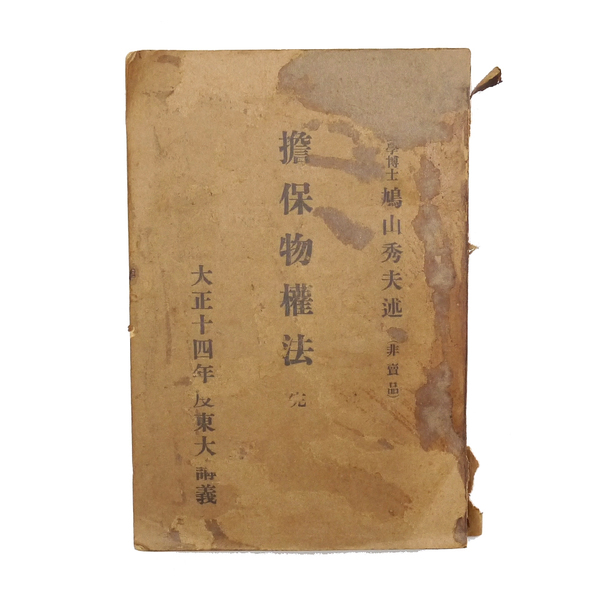 學博士 鳩山秀夫述 (非賣品)
擔保物權法 完
大正十四年度東大講義